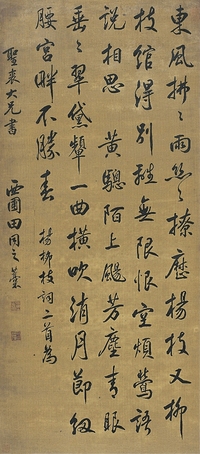 東風拂拂雨絲絲撩歷楊枝又柳
枝綰得別離無限恨空煩鶯語
說相思 黃驄陌上颺芳塵青眼
垂垂翠黛顰一曲橫吹綃月節細
腰宮畔不勝春 楊柳枝詞二首為
聖衷大兄書
西圃田同之